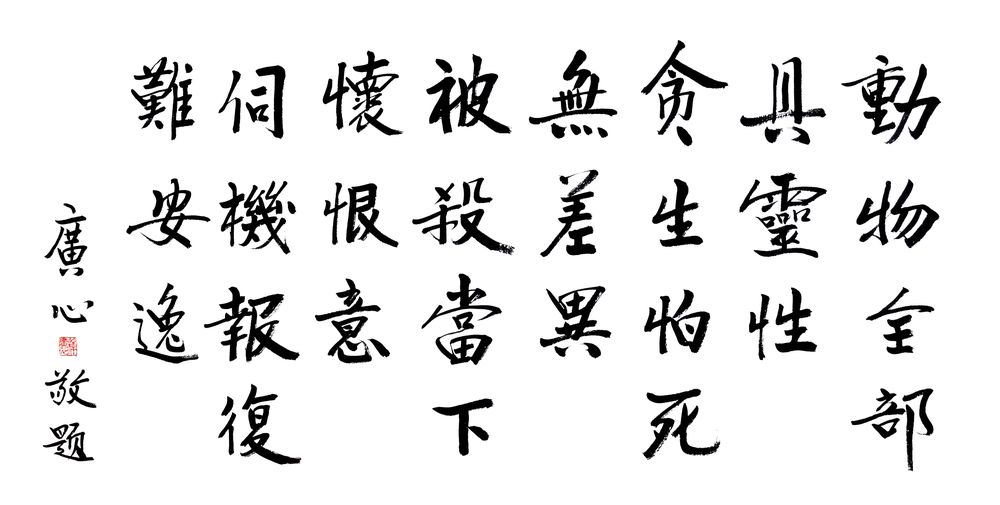 動物全部
具靈性
貪生怕死
無差異
被殺當下
懷恨意
伺機報復
難安逸
廣心敬題